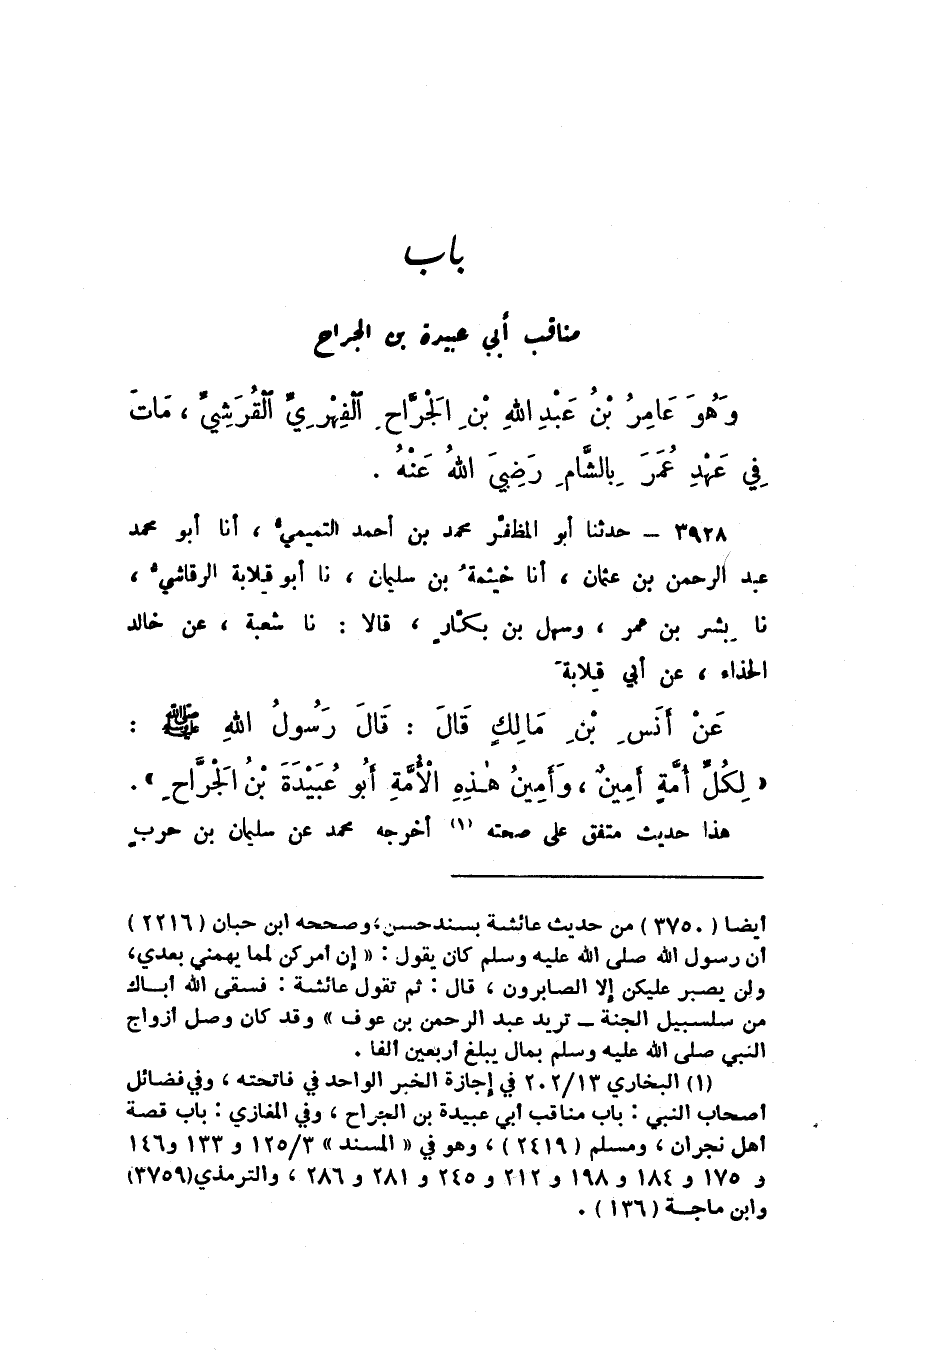 باب
مناقب أبي عبيدة بن الجراح
وَهُوَ عَامِرُ بْنُ عَبْدِ اللهِ بْنِ الْجَرَّاحِ الْفِهْرِيُّ الْقُرَشِيُّ ، مَاتَ
فِي عَهْدِ عُمَرَ بِالشَّامِ رَضِيَ اللهُ عَنْهُ .
٣٩٢٨ – حدثنا أبو المظفَّر محمد بن أحمد التميميُّ ، أنا أبو محمد
عبد الرحمن بن عثمان ، أنا خيثمةُ بن سليمان ، نا أبو قِلابة الرقاشيُّ ،
نا بِشر بن عمر ، وسهل بن بكَّارٍ ، قالا : نا شعبة ، عن خالد
الحذاء ، عن أبي قِلابةَ
عَنْ أَنَسِ بْنِ مَالِكٍ قَالَ : قَالَ رَسُولُ اللهِ ﷺ :
« لِكُلِّ أُمَّةٍ أَمِينٌ ، وَأَمِينُ هٰذِهِ الْأُمَّةِ أَبُو عُبَيْدَةَ بْنُ الْجَرَّاحِ » .
هذا حديث متفق على صحته (١) أخرجه محمد عن سليمان بن حربٍ
أيضا (٣٧٥٠) من حديث عائشة بسند حسن ، وصححه ابن حبان (٢٢١٦)
أن رسول الله صلى الله عليه وسلم كان يقول : « إن أمركن لمما يهمني بعدي،
ولن يصبر عليكن إلا الصابرون ، قال : ثم تقول عائشة : فسقى الله أباك
من سلسبيل الجنة – تريد عبد الرحمن بن عوف » وقد كان وصل أزواج
النبي صلى الله عليه وسلم بمال يبلغ أربعين ألفا .
(١) البخاري ٢٠٢/١٣ في إجازة الخبر الواحد في فاتحته ، وفي فضائل
أصحاب النبي : باب مناقب أبي عبيدة بن الجراح ، وفي المغازي : باب قصة
أهل نجران ، ومسلم (٢٤١٩) ، وهو في « المسند » ١٢٥/٣ و ١٣٣ و١٤٦
و ١٧٥ و ١٨٤ و ١٩٨ و ٢١٢ و ٢٤٥ و ٢٨١ و ٢٨٦ ، والترمذي(٣٧٥٩)
وابن ماجة (١٣٦) .